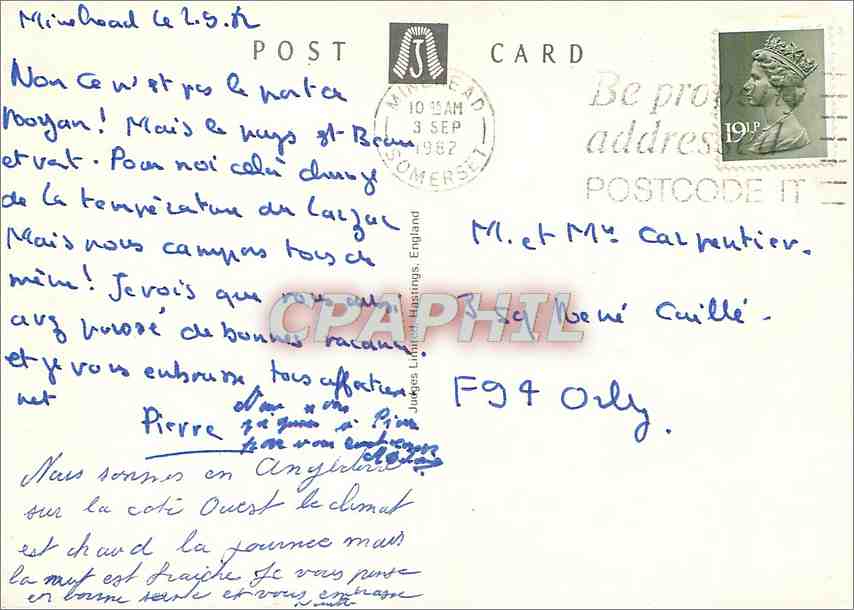 Minehead le 2.9.82
POST CARD
J
MINEHEAD
10 15 AM
3 SEP
1982
SOMERSET
Be
address
POSTCODE IT
19½P
Non ce n'est pas le port de
Royan! Mais le pays est Beau
et vert. Pour moi celà change
de la température du Larzac
Mais nous campons tous de
même! Je vois que vous aussi
avez passé de bonnes vacances.
et je vous embrasse tous affectueuse
ment
Pierre
à Pierre
pour vous embrasser
Nous sommes en Angleterre
sur la coté Ouest le climat
est chaud la journee mais
la nuit est fraiche Je vous pense
en bonne sante et vous embrasse
Judges Limited, Hastings, England
M. et Mme Carpentier.
3 sq René Caillé.
F94 Orly.
CPAPHIL